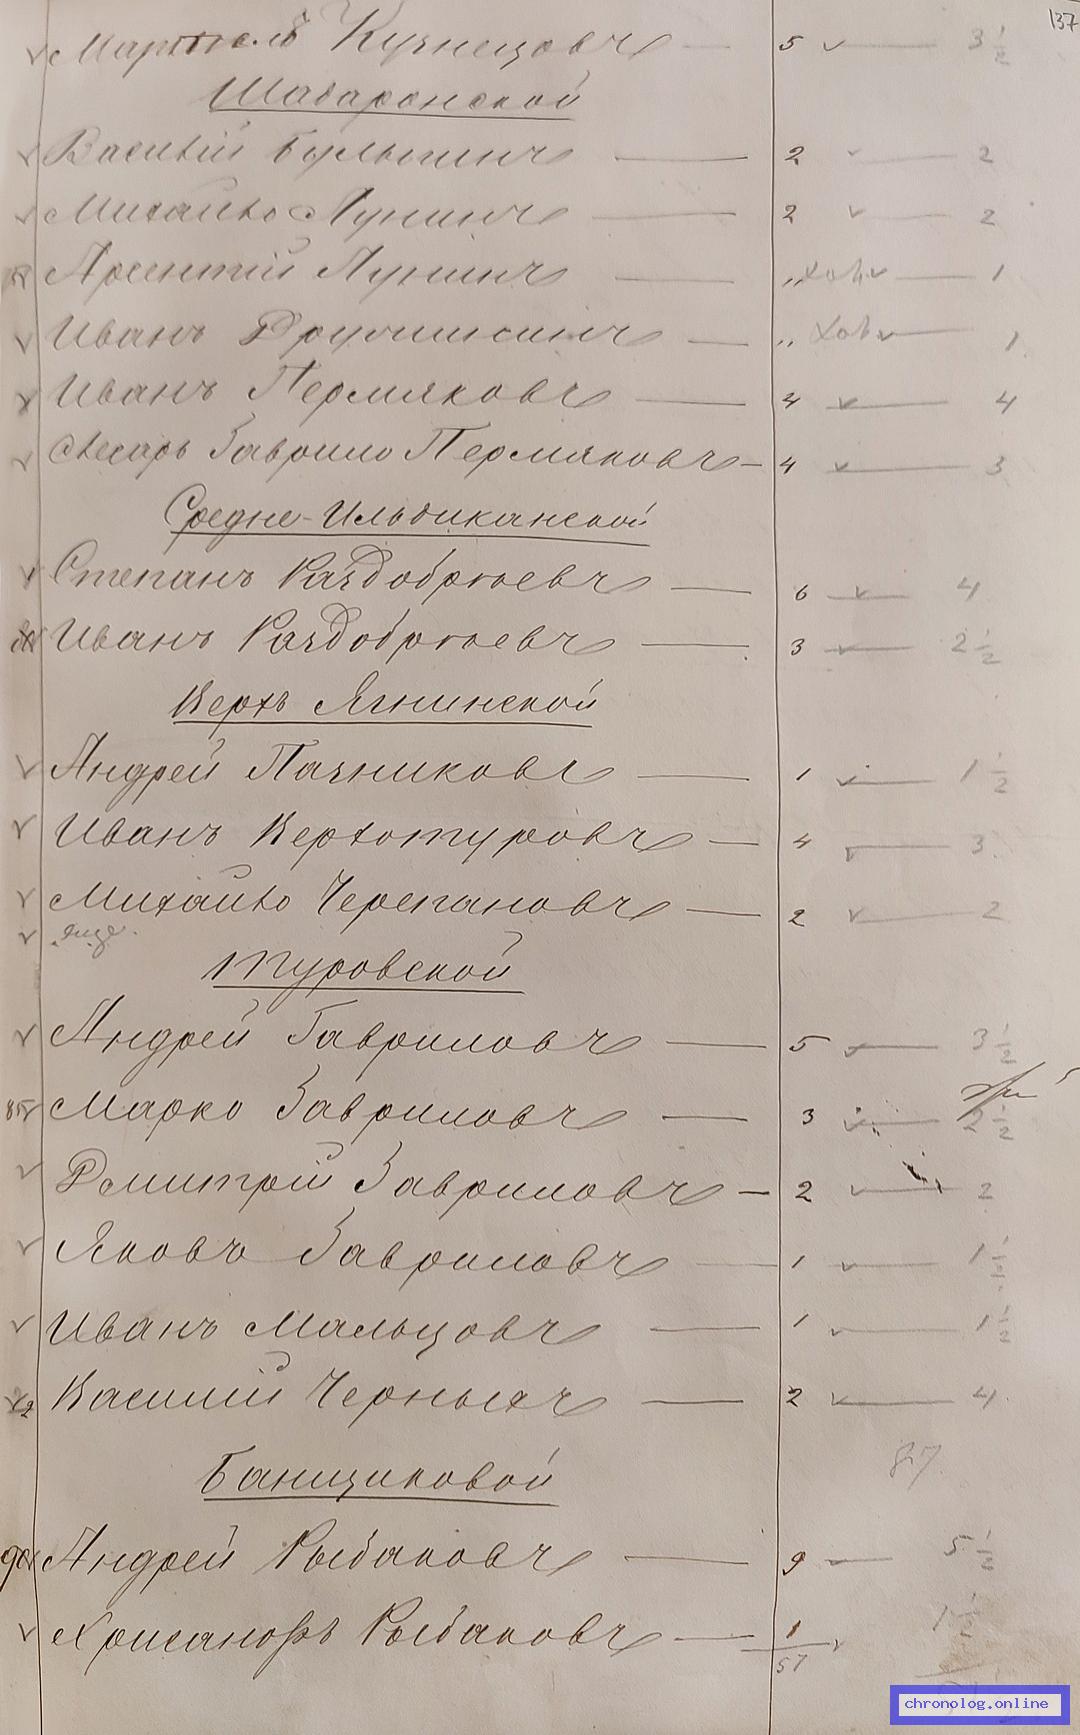 137
Кузнецовъ — 5 — 3 1/2
Шаваронской
Василий Булыгинъ — 2 — 2
Михайло Лунинъ — 2 — 2
Арсентий Лунинъ — „ — 1
Иванъ — „ — 1
Иванъ Пермяковъ — 4 — 4
Гаврило Пермяковъ — 4 — 3
Средне-Ильдиканской
Степанъ Раздобрѣевъ — 6 — 4
Иванъ Раздобрѣевъ — 3 — 2 1/2
Верхъ Ягнинской
Андрей Пачниковъ — 1 — 1 1/2
Иванъ Верхотуровъ — 4 — 3
Михайло Черепановъ — 2 — 2
Туровской
Андрей Гавриловъ — 5 — 3 1/2
Марко Гавриловъ — 3 — 2 1/2
Дмитрій Гавриловъ — 2 — 2
Яковъ Гавриловъ — 1 — 1 1/2
Иванъ Мальцовъ — 1 — 1 1/2
Василій Черныхъ — 2 — 4
87
Банщиковой
Андрей Рыбаковъ — 9 — 5 1/2
Хрисанфъ Рыбаковъ — 1 — 1 1/2
57
chronolog.online